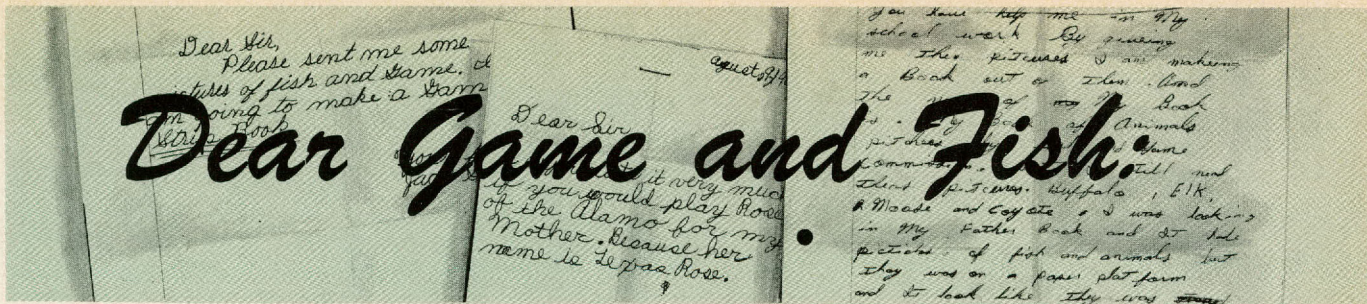 Dear Game and Fish:
Dear Sir,
Please sent me some
of fish and Game.
going to make a Gam
Strip Book
Dear Sir
it very much
if you would play Rose
of the Alamo for my
Mother. Because her
name is Texas Rose.
you have help me in My
school work By giveing
me Thes I am makeing
a Book out of Them. And
The of my My Book
My Animals
Game
Still need
Buffalo, Elk,
Moose and Coyote I was looking
in My Father Book and It had
of fish and animals but
They was on a paper plat form
and It look like They was